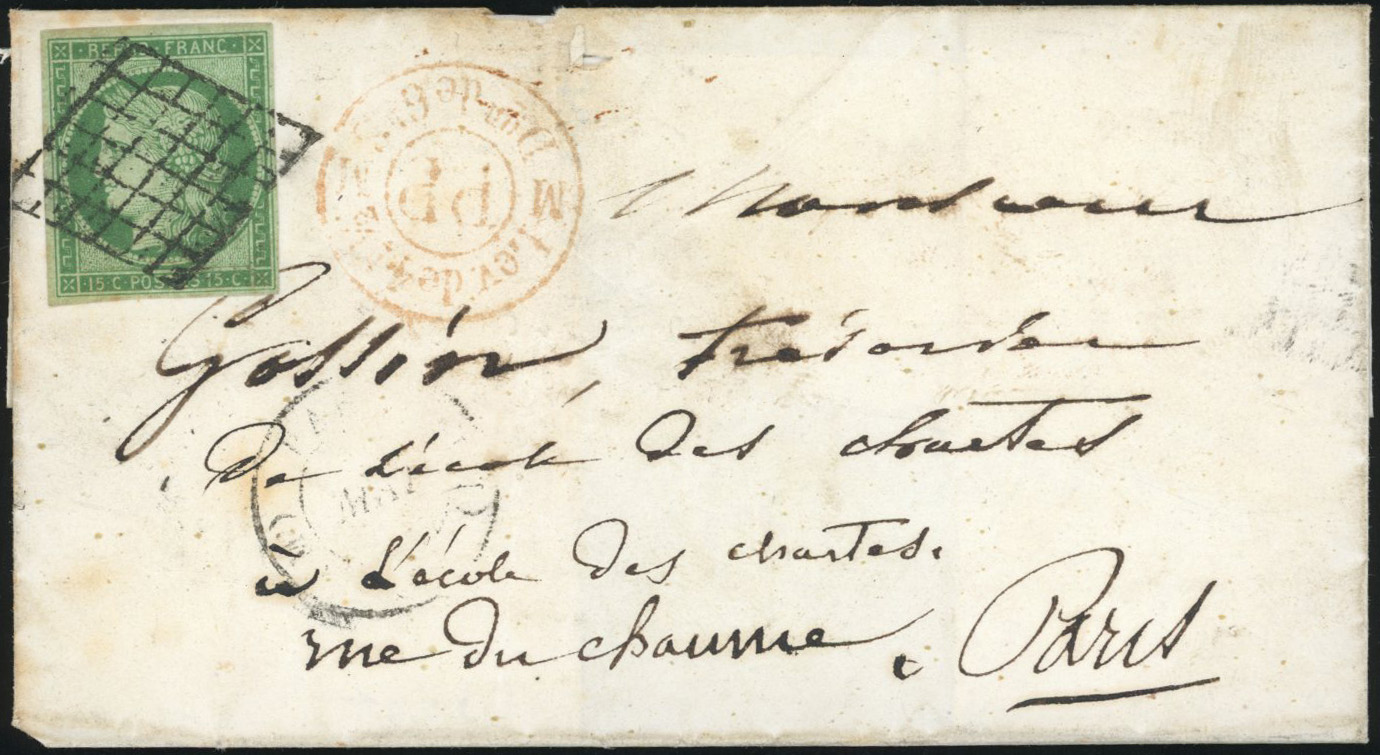 REPUB FRANC
15·C POSTES 15·C
M Lev. de
PP
Monsieur
Gossin, trésorier
De l'école des chartes
à l'école des chartes.
rue du chaume. Paris
MAI